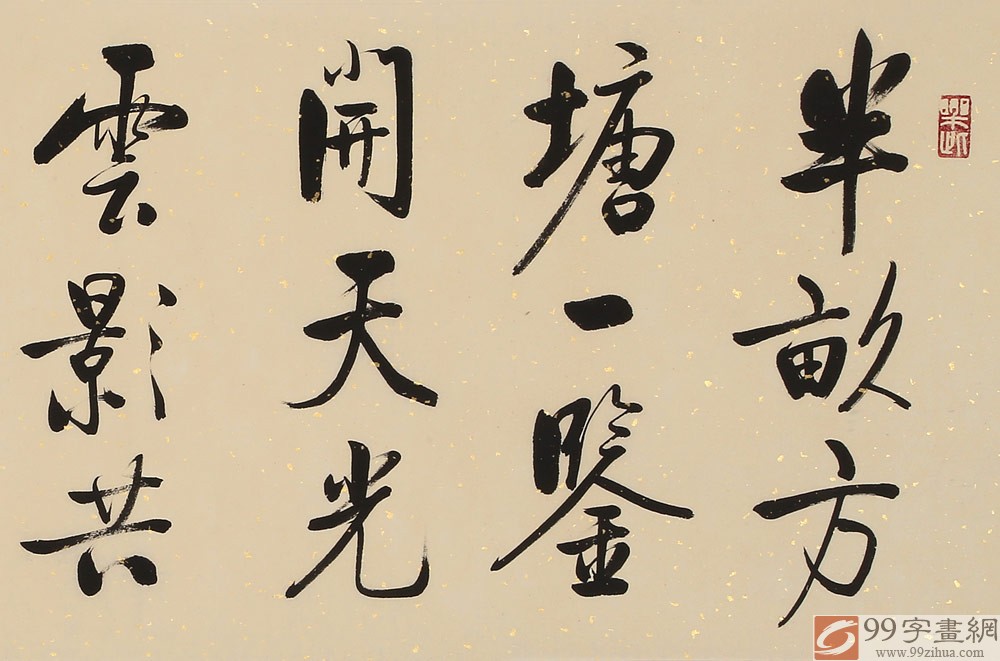 半畝方
塘一鑒
開天光
雲影共
99字畫網
www.99zihua.com